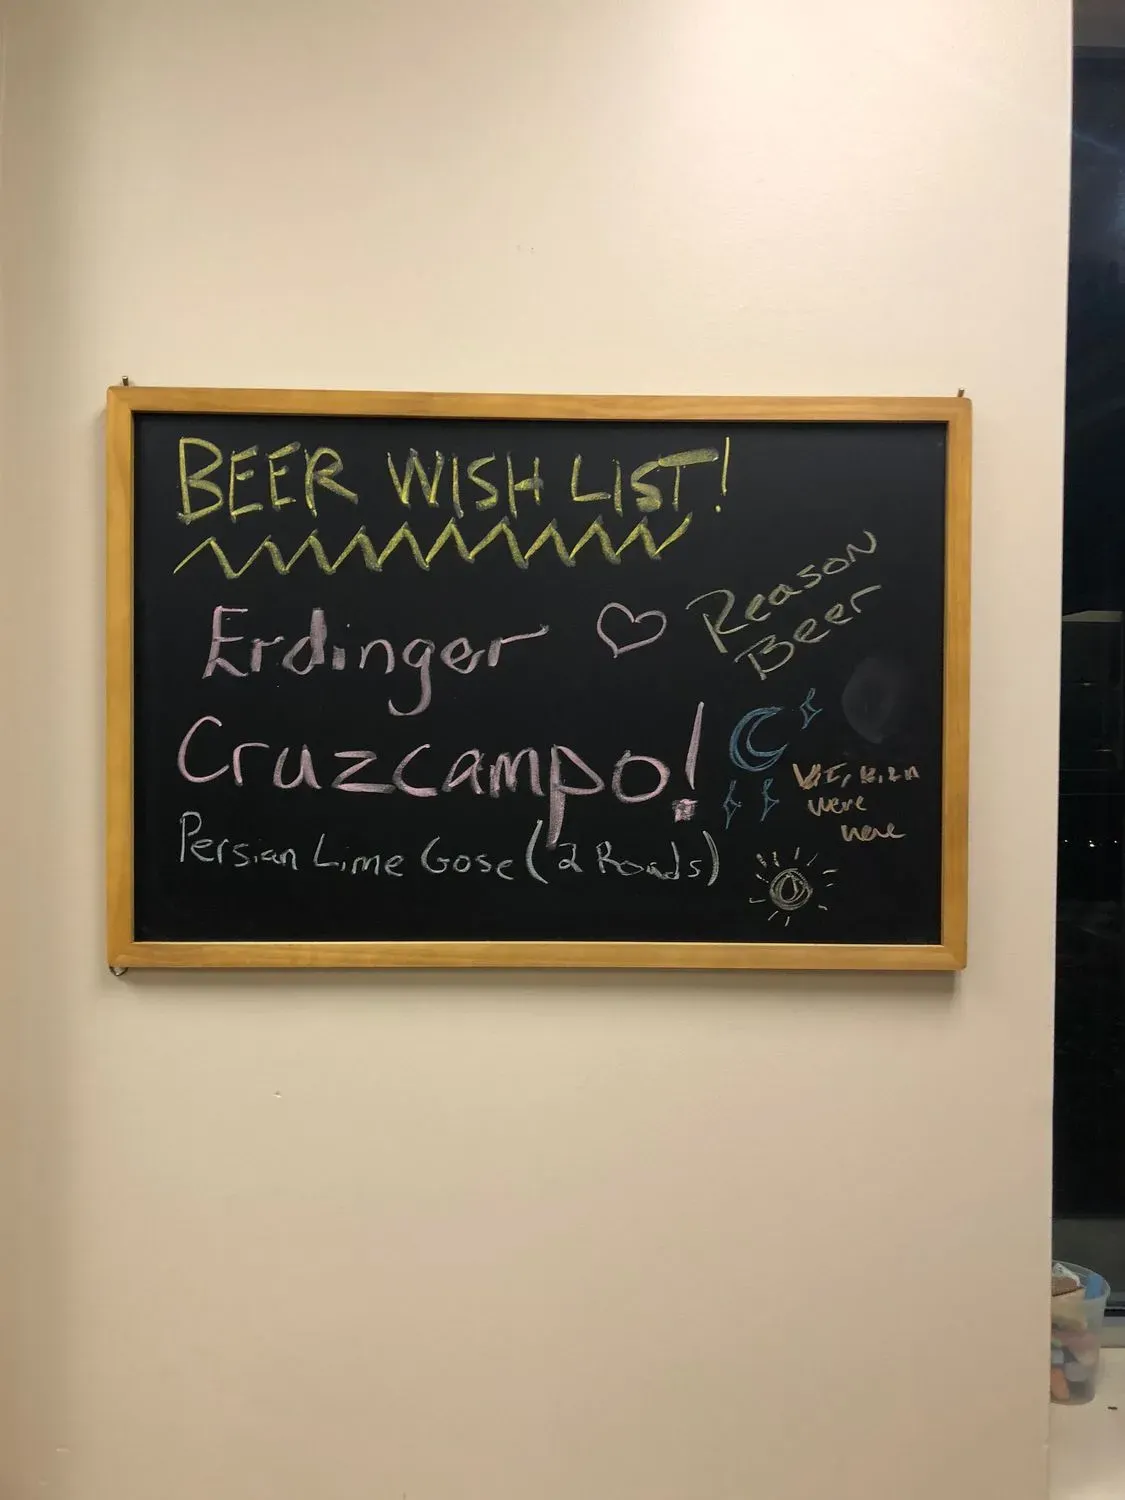 BEER WISH LIST!
Erdinger
Reason
Beer
Cruzcampo!
were
here
Persian Lime Gose (2 Roads)